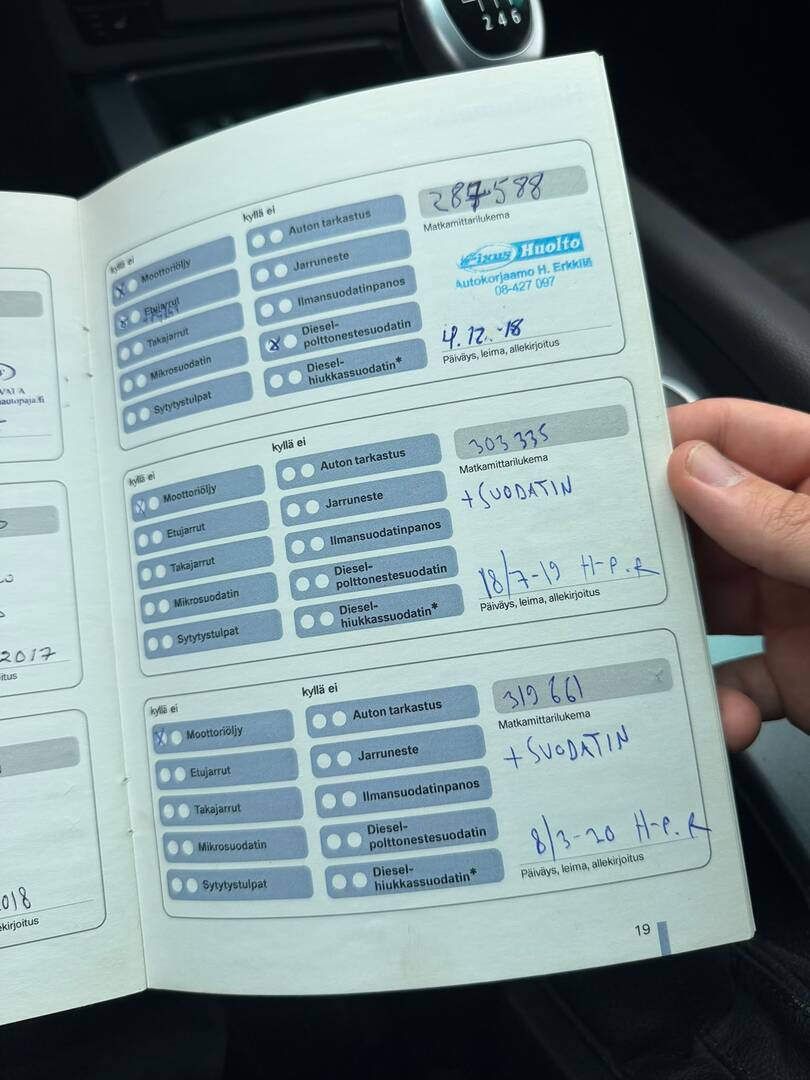 2 4 6
287588
Matkamittarilukema
kyllä ei
kyllä ei
Moottoriöljy
Auton tarkastus
Etujarrut
Jarruneste
Takajarrut
Ilmansuodatinpanos
Mikrosuodatin
Diesel-
polttonestesuodatin
Sytytystulpat
Diesel-
hiukkassuodatin*
Fixus Huolto
Autokorjaamo H. Erkkilä
08-427 097
4.12.-18
Päiväys, leima, allekirjoitus
303 335
Matkamittarilukema
kyllä ei
kyllä ei
Moottoriöljy
Auton tarkastus
Etujarrut
Jarruneste
Takajarrut
Ilmansuodatinpanos
Mikrosuodatin
Diesel-
polttonestesuodatin
Sytytystulpat
Diesel-
hiukkassuodatin*
+ SUODATIN
18/7-19 H-P.R
Päiväys, leima, allekirjoitus
319 661
Matkamittarilukema
kyllä ei
kyllä ei
Moottoriöljy
Auton tarkastus
Etujarrut
Jarruneste
Takajarrut
Ilmansuodatinpanos
Mikrosuodatin
Diesel-
polttonestesuodatin
Sytytystulpat
Diesel-
hiukkassuodatin*
+ SUODATIN
8/3-20 H-P.R
Päiväys, leima, allekirjoitus
19
2017